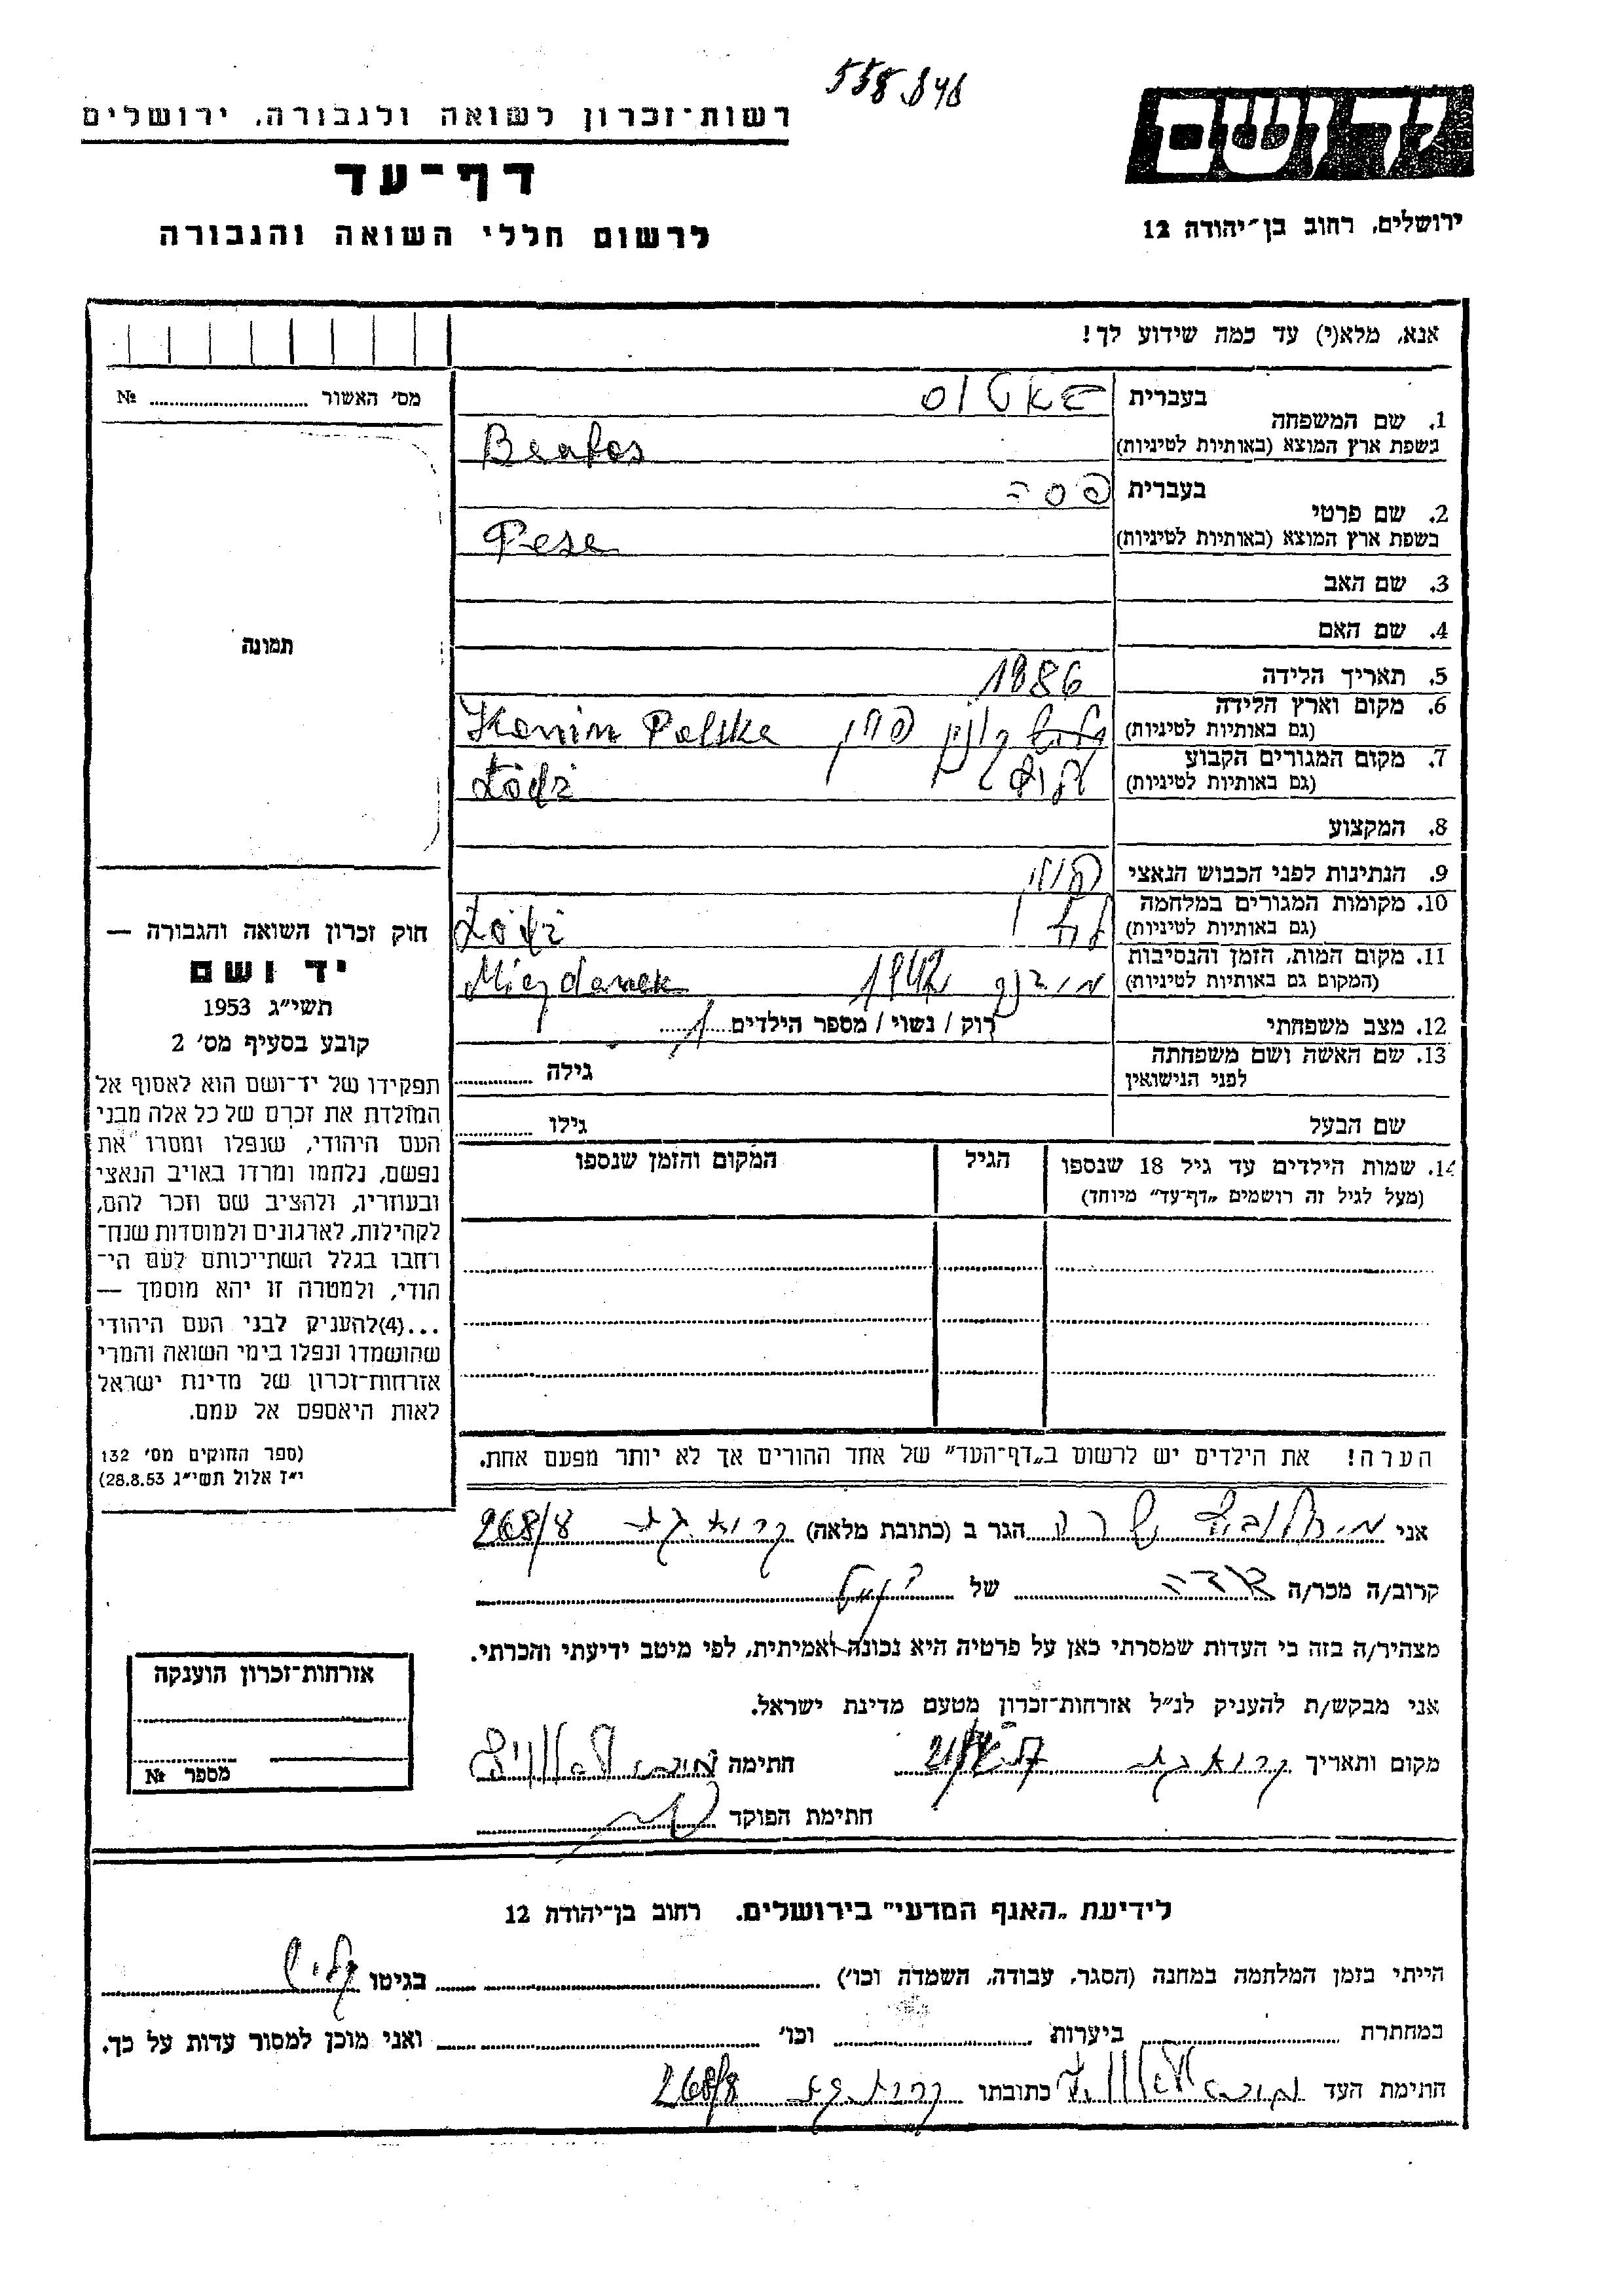 558.848
יד ושם
רשות־זכרון לשואה ולגבורה, ירושלים
דף־עד
לרשום חללי השואה והגבורה
ירושלים, רחוב בן־יהודה 12
אנא, מלא(י) עד כמה שידוע לך!
מס׳ האשור № 
1. שם המשפחה
בעברית
בשפת ארץ המוצא (באותיות לטיניות) Beatos
2. שם פרטי
בעברית פסה
בשפת ארץ המוצא (באותיות לטיניות) Pese
3. שם האב
4. שם האם
תמונה
5. תאריך הלידה 1886
6. מקום וארץ הלידה
(גם באותיות לטיניות) קונין פולין Konin Polska
7. מקום המגורים הקבוע
(גם באותיות לטיניות) לודז Łódź
8. המקצוע
9. הנתינות לפני הכבוש הנאצי פולני
10. מקומות המגורים במלחמה
(גם באותיות לטיניות) לודז Łódź
11. מקום המות, הזמן והנסיבות
(המקום גם באותיות לטיניות) מידנק 1942 Miejdanek
12. מצב משפחתי רוק / נשוי / מספר הילדים 1
13. שם האשה ושם משפחתה
לפני הנישואין גילה
שם הבעל גילו
14. שמות הילדים עד גיל 18 שנספו
(מעל לגיל זה רושמים „דף־עד״ מיוחד)
הגיל
המקום והזמן שנספו
חוק זכרון השואה והגבורה —
יד ושם
תשי״ג 1953
קובע בסעיף מס׳ 2
תפקידו של יד־ושם הוא לאסוף אל
המולדת את זכרם של כל אלה מבני
העם היהודי, שנפלו ומסרו את
נפשם, נלחמו ומרדו באויב הנאצי
ובעוזריו, ולהציב שם וזכר להם,
לקהילות, לארגונים ולמוסדות שנח־
רחבו בגלל השתייכותם לעם הי־
הודי, ולמטרה זו יהא מוסמך —
...(4)להעניק לבני העם היהודי
שהושמדו ונפלו בימי השואה והמרי
אזרחות־זכרון של מדינת ישראל
לאות היאספם אל עמם.
(ספר החוקים מס׳ 132
י״ז אלול תשי״ג 28.8.53)
הערה! את הילדים יש לרשום ב„דף־העד״ של אחד ההורים אך לא יותר מפעם אחת.
אני שרה הגר ב (כתובת מלאה) קרית גת 268/8
קרוב/ה מכר/ה של
מצהיר/ה בזה כי העדות שמסרתי כאן על פרטיה היא נכונה ואמיתית, לפי מיטב ידיעתי והכרתי.
אני מבקש/ת להעניק לנ״ל אזרחות־זכרון מטעם מדינת ישראל.
מקום ותאריך קרית גת חתימה
חתימת הפוקד
אזרחות־זכרון הוענקה
מספר №
לידיעת „האגף המדעי״ בירושלים. רחוב בן־יהודה 12
הייתי בזמן המלחמה במחנה (הסגר, עבודה, השמדה וכו׳) בגיטו
במחתרת ביערות וכו׳ ואני מוכן למסור עדות על כך.
חתימת העד כתובתו קרית גת 268/8